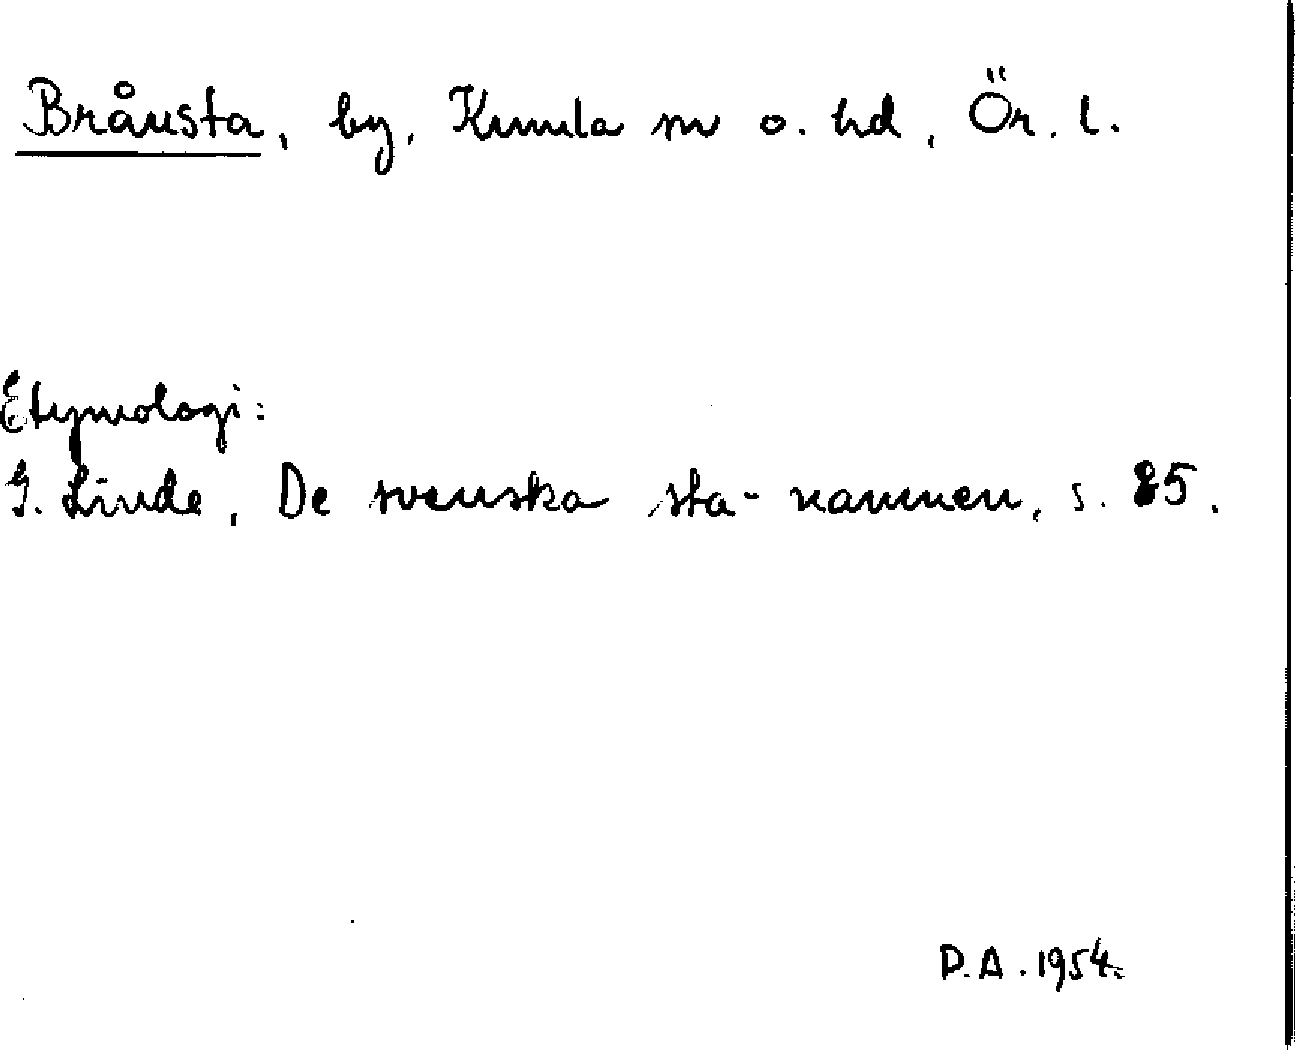 Brånsta, by, Kumla sn o. hd, Ör. l.
Etymologi:
G. Linde, De svenska sta-namnen, s. 85.
D.A. 1954.